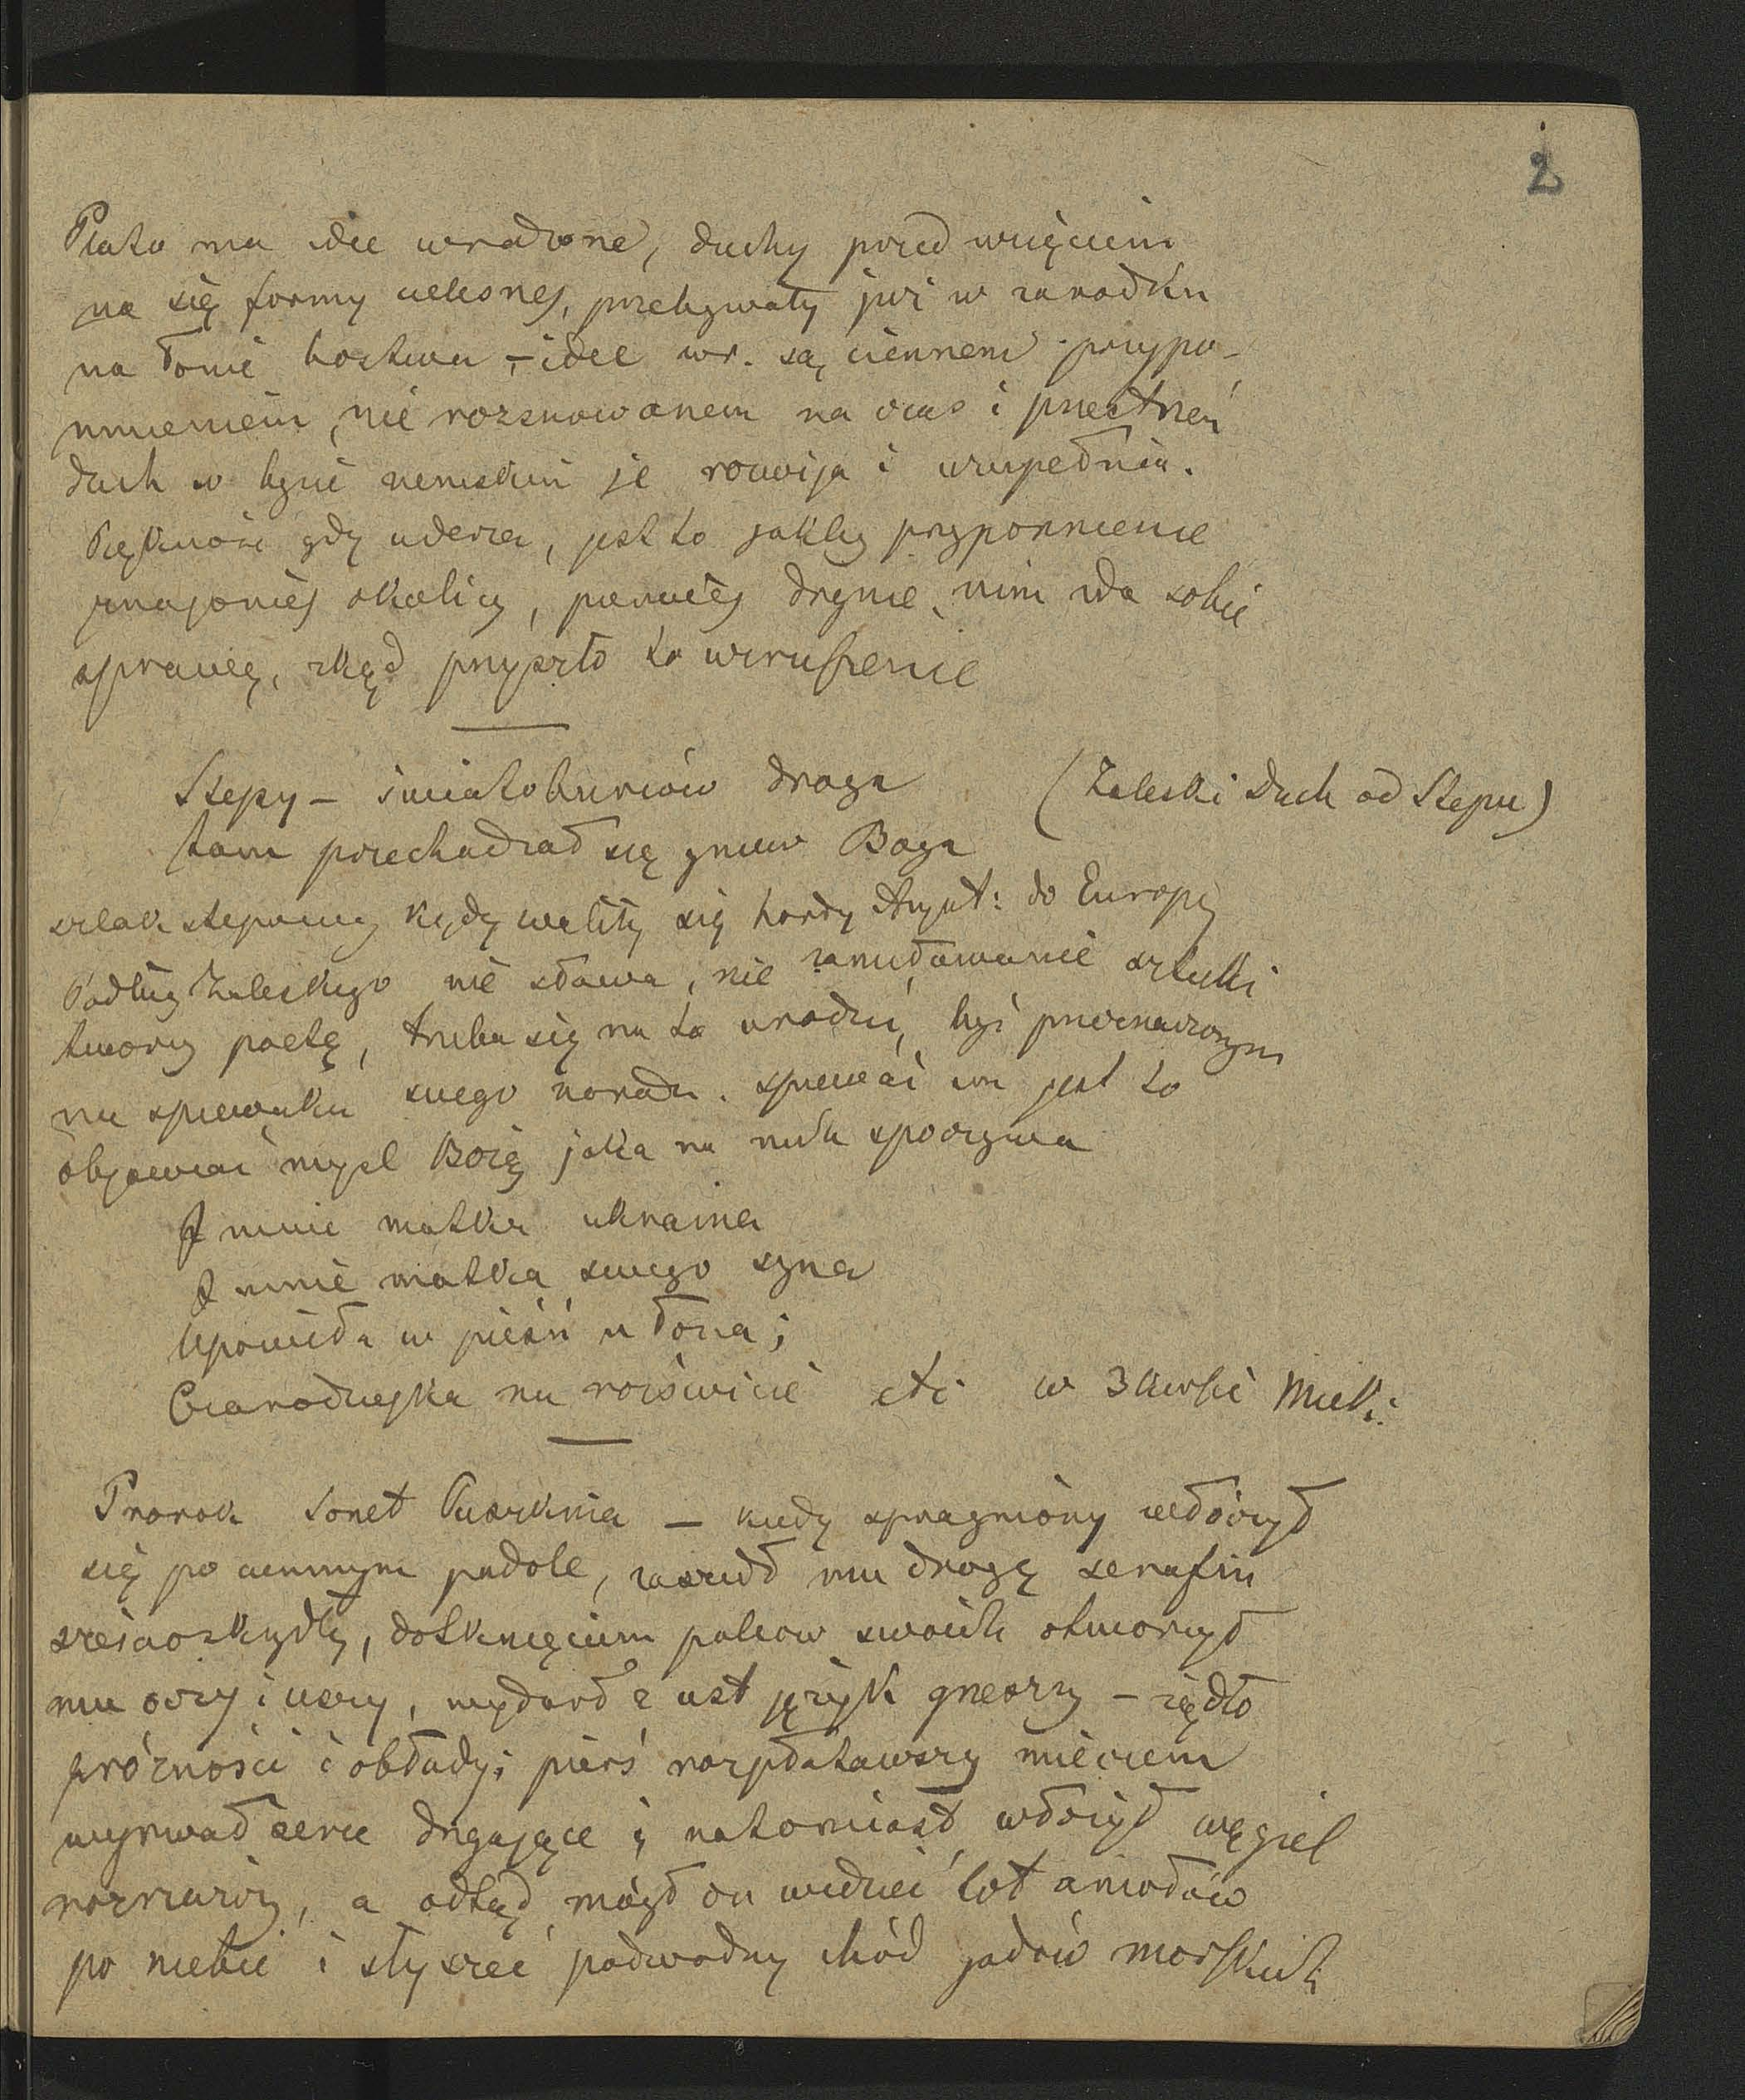 2
Plato ma idee wrodzone, duchy przed wzięciem
na się formy cielesnej, przebywały już w zarodku
na łonie bóstwa, – idee wr. są ciemnem przypo-
mnieniem, nie rozsnowanem na czas i przestrzeń
duch w bycie ziemskim je rozwija i uzupełnia.
Piękność gdy uderza, jest to jakby przypomnienie
znajomej okolicy, pierwiej drgnie, nim zda sobie
sprawę, zkąd przyszło to wzruszenie
Stepy – światoburców droga (Zaleski Duch od Stepu)
tam przechadzał się gniew Boga
szlak stepowy kędy waliły się hordy Azyat: do Europy
Podług Zaleskiego nie sława, nie zamiłowanie sztuki
tworzy poetę, trzeba się na to urodzić, być przeznaczonym
na śpiewaka swego narodu. śpiewać zaś jest to
objawiać mysl Bożą jaka na nich spoczywa
I mnie matka ukraina
I mnie matka swego syna
Upowiła w pieśń u łona;
Czarodziejka na rozświcie etc w 3 kursie Micki:
Prorok Sonet Puszkina – kiedy spragniony włóczył
się po ciemnym padole, zaszedł mu drogę serafin
sześcioskrzydły, dotknięciem palców swoich otworzył
mu oczy i uszy, wydarł z ust język grzeszny – żądło
próżności i obłudy; pierś rozpłatawszy mieczem
wyrwał serce drgające i natomiast włożył węgiel
rozżarzony, a odtąd mógł on widzieć lot aniołów
po niebie i słyszeć podwodny chód gadów morskich